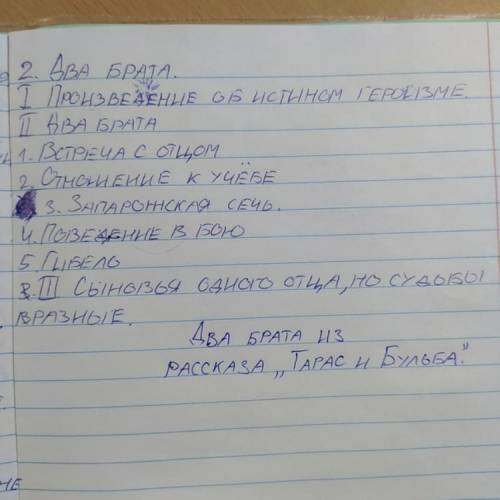 2. Два брата.
I Произведение об истином героизме.
II Два брата
1. Встреча с отцом
2. Отношение к учёбе
3. Запарожская сечь.
4. Поведение в бою
5. Гибело
III Сыновья одного отца, но судьбы
вразные.
Два брата из
рассказа „Тарас и Бульба."